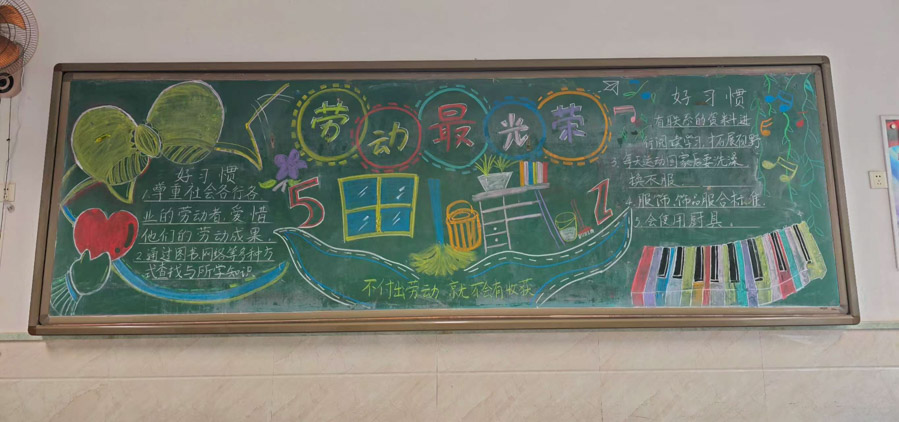 劳动最光荣
好习惯
1.尊重社会各行各
业的劳动者,爱惜
他们的劳动成果,
2.通过图书.网络等多种方
式查找与所学知识
5 1
不付出劳动,就不会有收获
好习惯
有联系的资料进
行阅读学习,拓展视野
3.每天运动回家后要先洗
换衣服
4.服饰.饰品服合标准
5.会使用厨具.